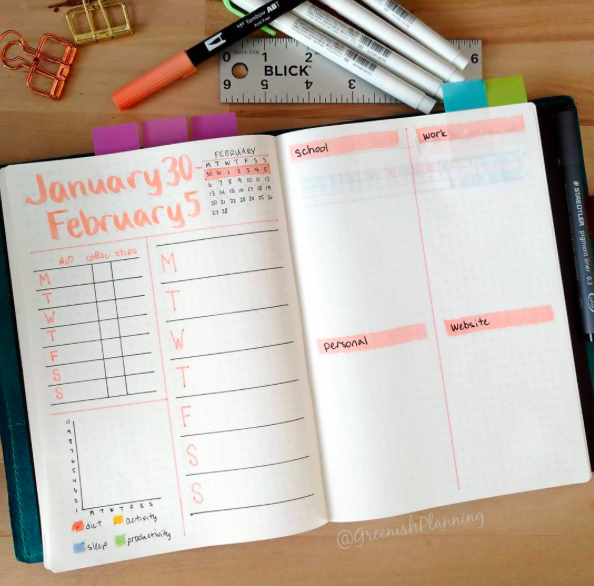 Tombow AB
BLICK
January 30-
February 5
FEBRUARY
M T W T F S S
30 31 1 2 3 4 5
6 7 8 9 10 11 12
13 14 15 16 17 18 19
20 21 22 23 24 25 26
27 28
H2O coffee steps
M
T
W
T
F
S
S
M
T
W
T
F
S
S
10
9
8
7
6
5
4
3
2
1
M T W T F S S
diet activity
sleep productivity
school
work
personal
website
STAEDTLER pigment liner 0.3
@GreenishPlanning